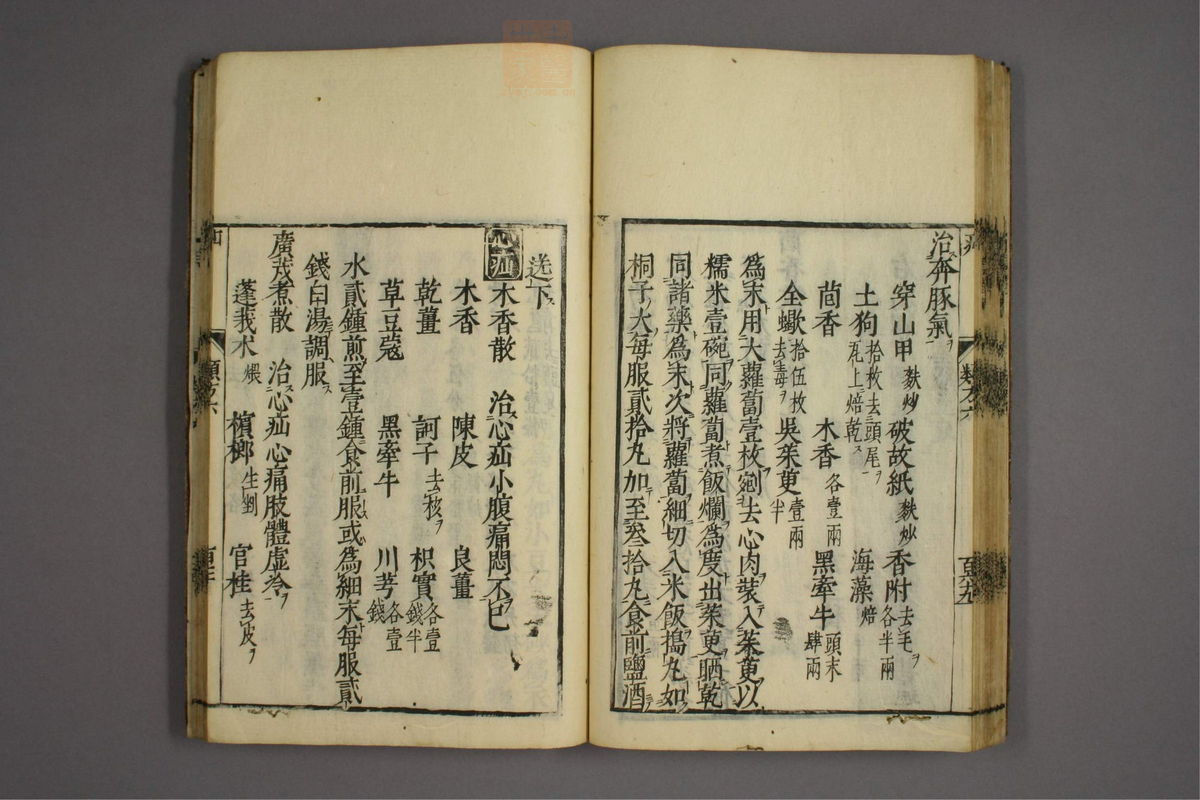 治奔豚氣
穿山甲麩炒 破故紙麩炒 香附去毛各半兩
土狗拾枚去頭尾瓦上焙乾 海藻焙
茴香 木香各壹兩 黑牽牛頭末肆兩
全蠍拾伍枚去毒 吳茱萸壹兩半
爲末用大蘿蔔壹枚剜去心肉裝入茱萸以
糯米壹碗同蘿蔔煮飯爛爲度出茱萸晒乾
同諸藥爲末次將蘿蔔細切入米飯搗丸如
桐子大每服貳拾丸加至叄拾丸食前鹽酒
送下
心疝 木香散 治心疝小腹痛悶不已
木香 陳皮 良薑
乾薑 訶子去核 枳實各壹錢半
草豆蔻 黑牽牛 川芎各壹錢
水貳鍾煎至壹鍾食前服或爲細末每服貳
錢白湯調服
廣茂煮散 治心疝心痛肢體虛冷
蓬莪朮煨 檳榔生剉 官桂去皮
類方六